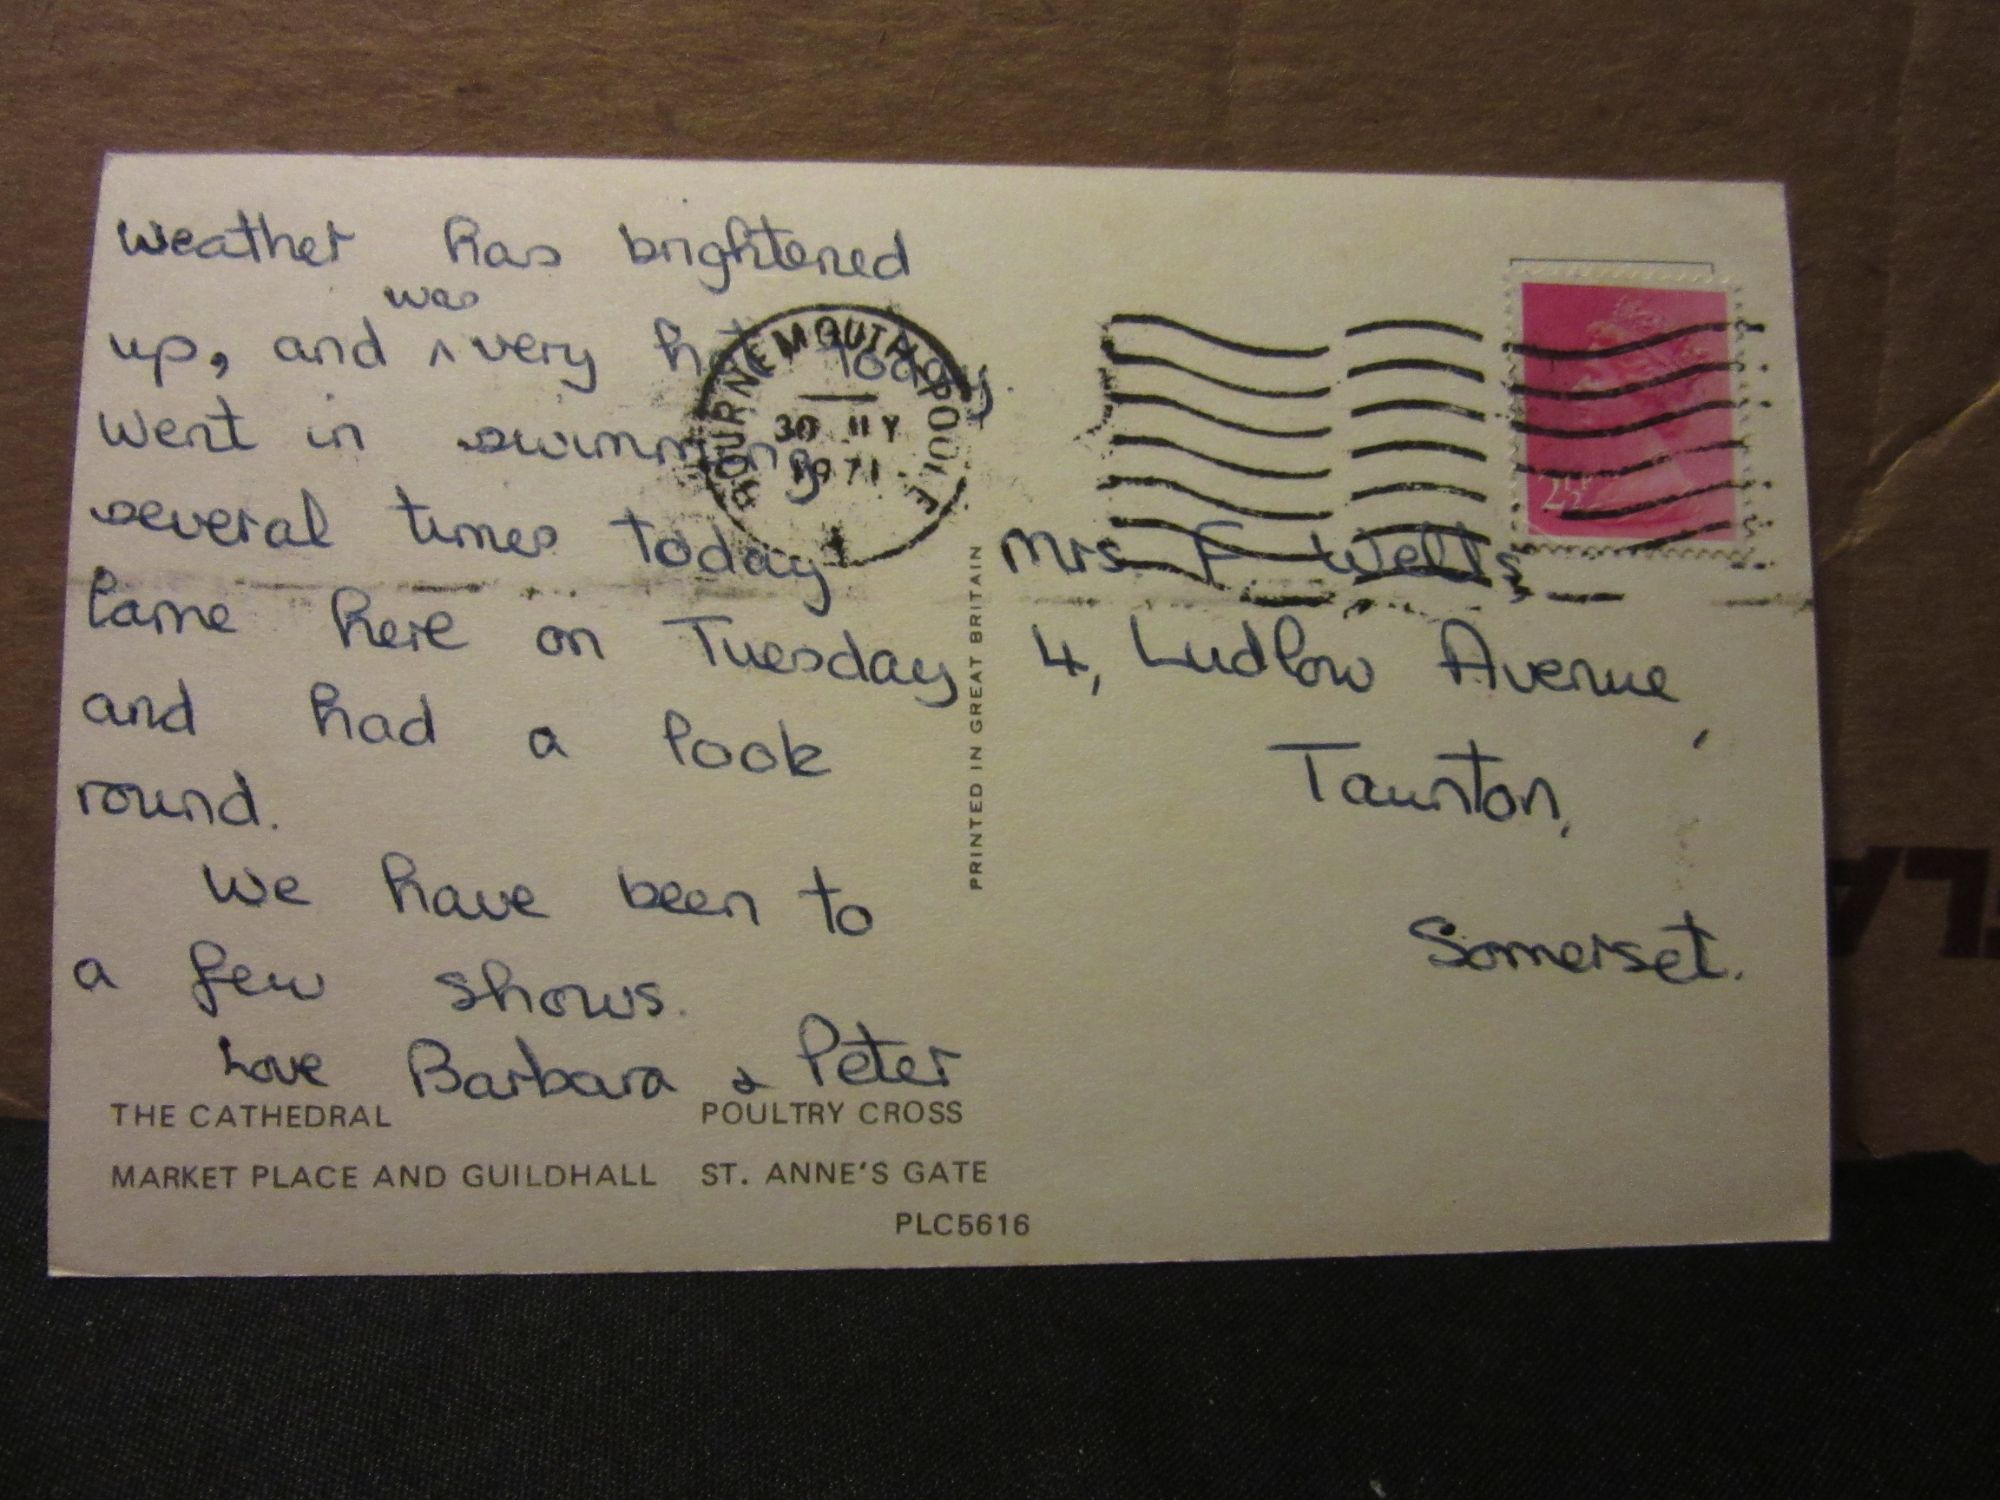 Weather has brightened
up, and ^ was very hot today.
Went in swimming
several times today
Came here on Tuesday
and had a look
round.
We have been to
a few shows.
Love Barbara & Peter
THE CATHEDRAL POULTRY CROSS
MARKET PLACE AND GUILDHALL ST. ANNE'S GATE
PLC5616
PRINTED IN GREAT BRITAIN
BOURNEMOUTH POOLE
30
1971
2½P
Mrs F Wells,
4, Ludlow Avenue,
Taunton,
Somerset.